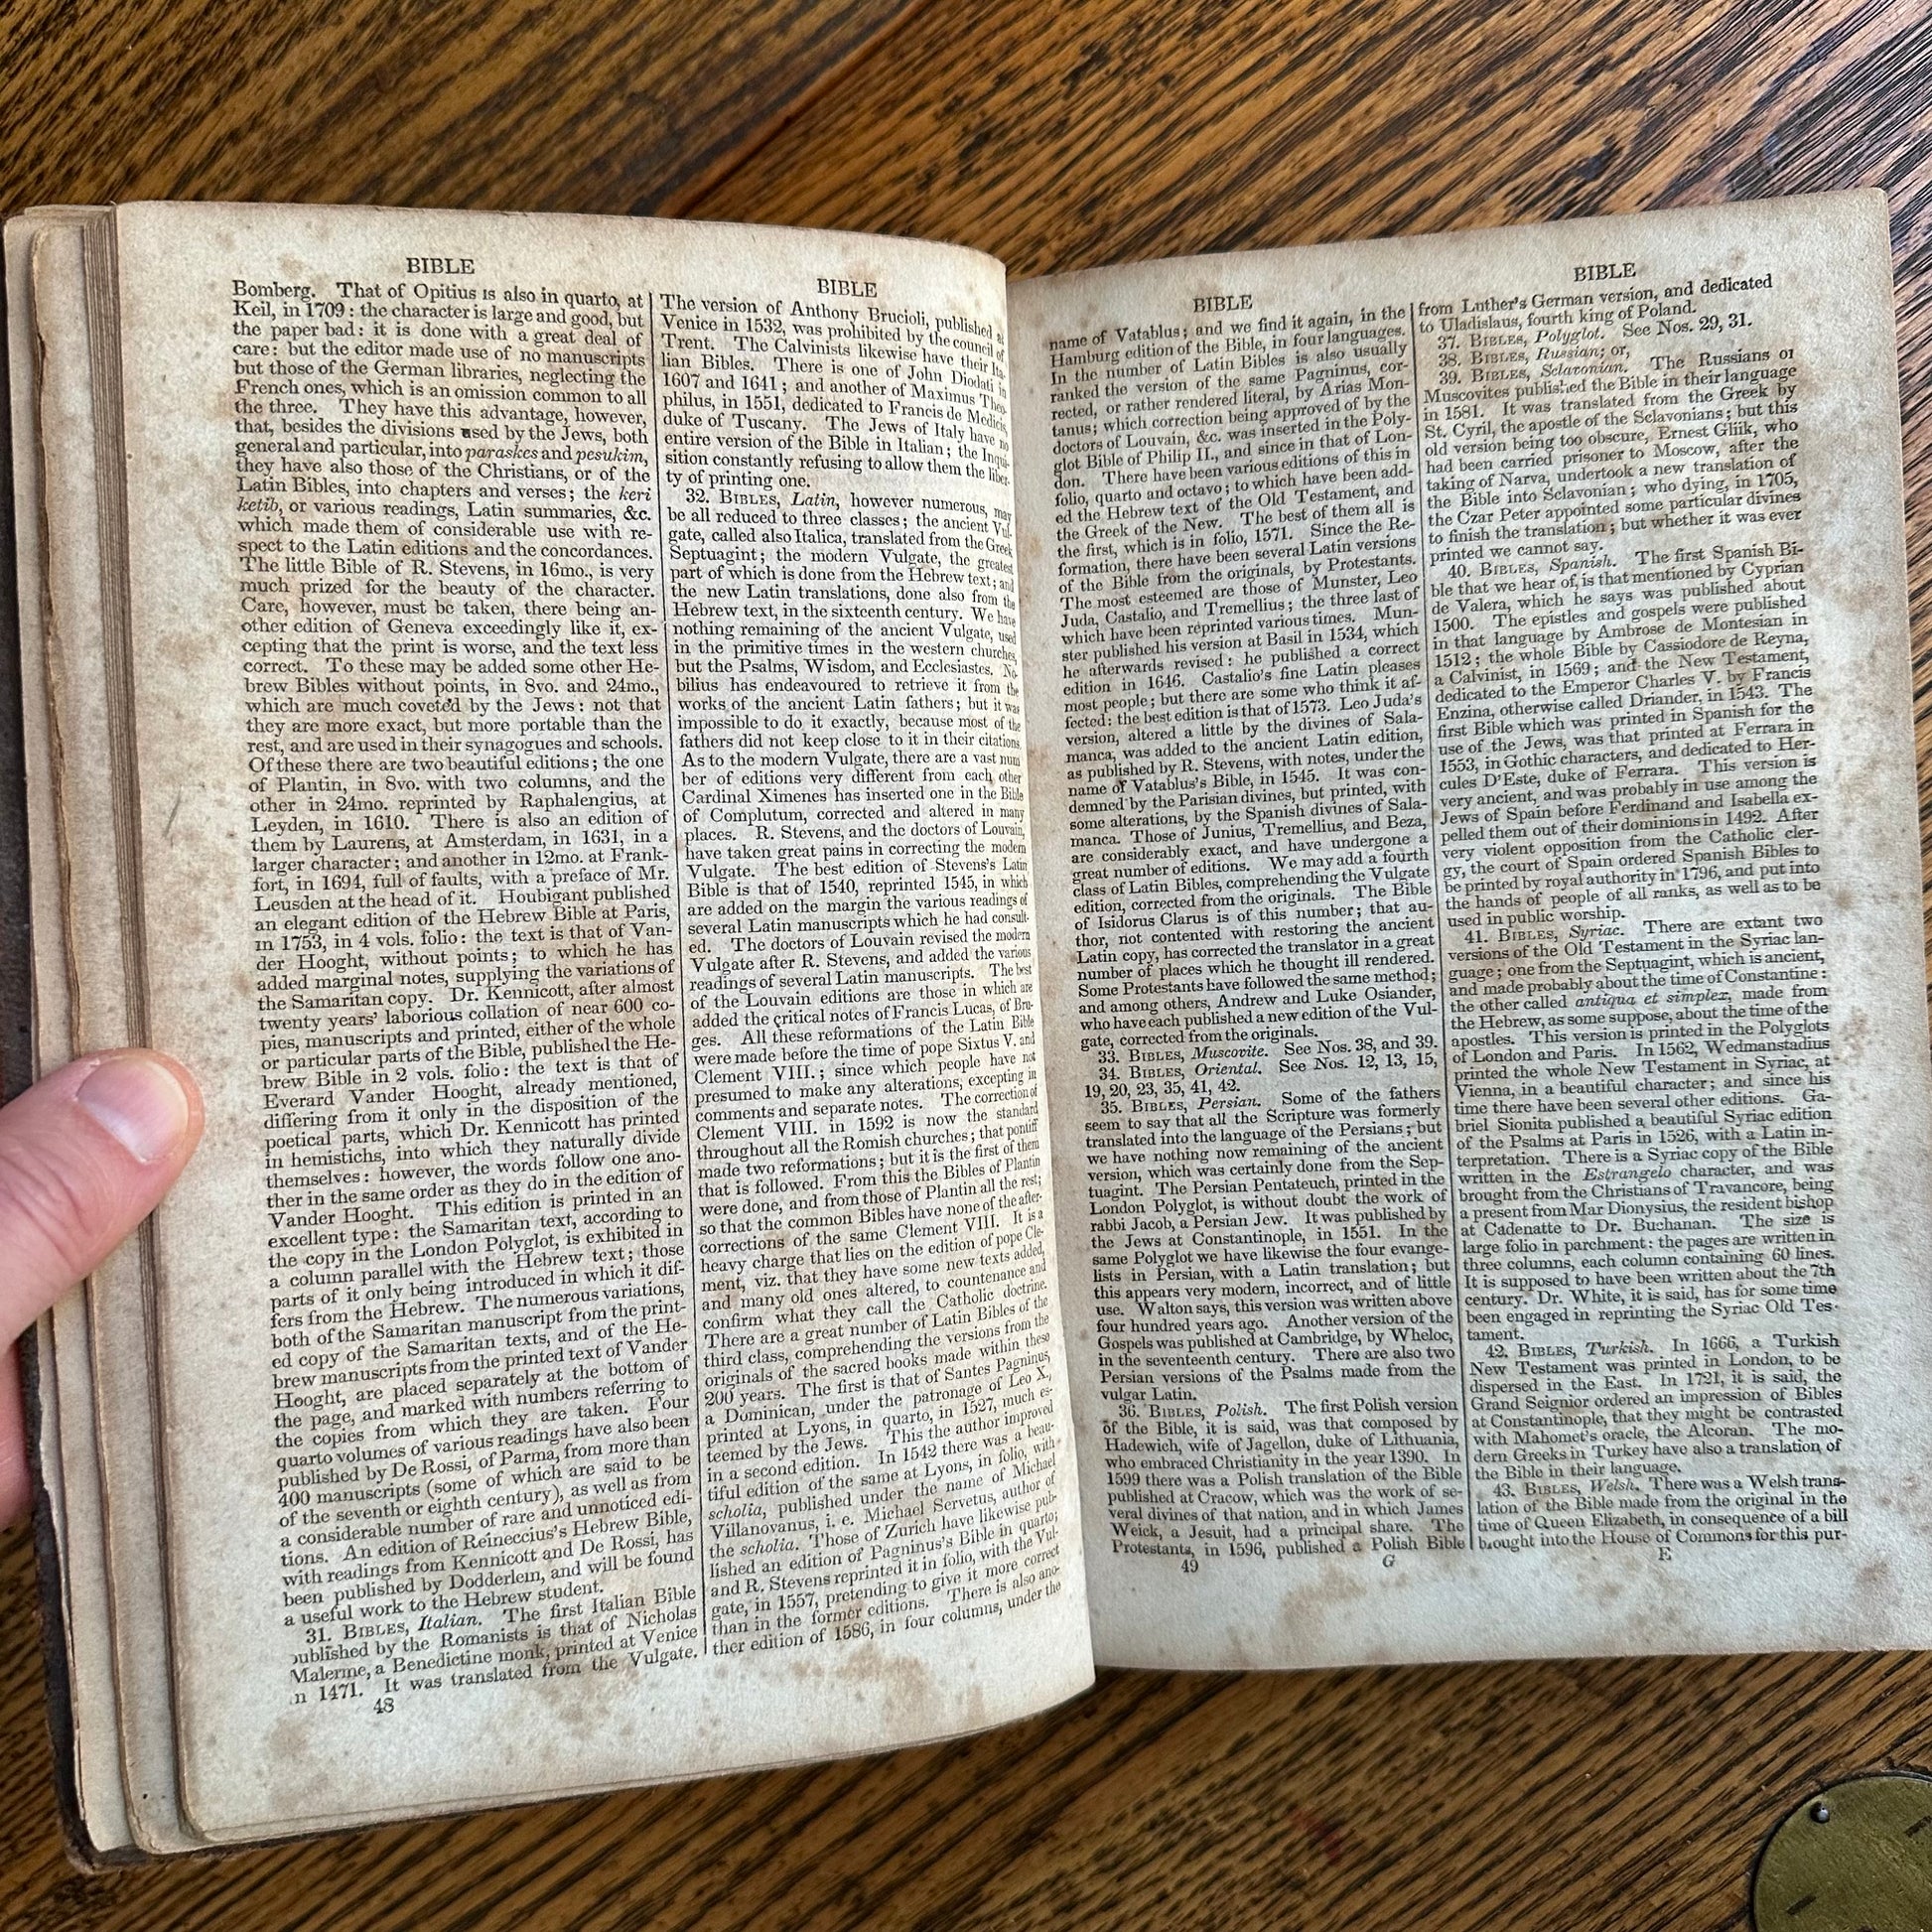 BIBLE
Bomberg. That of Opitius is also in quarto, at
Keil, in 1709 : the character is large and good, but
the paper bad: it is done with a great deal of
care: but the editor made use of no manuscripts
but those of the German libraries, neglecting the
French ones, which is an omission common to all
the three. They have this advantage, however,
that, besides the divisions used by the Jews, both
general and particular, into paraskes and pesukim,
they have also those of the Christians, or of the
Latin Bibles, into chapters and verses; the keri
ketib, or various readings, Latin summaries, &c.
which made them of considerable use with re-
spect to the Latin editions and the concordances.
The little Bible of R. Stevens, in 16mo., is very
much prized for the beauty of the character.
Care, however, must be taken, there being an-
other edition of Geneva exceedingly like it, ex-
cepting that the print is worse, and the text less
correct. To these may be added some other He-
brew Bibles without points, in 8vo. and 24mo.,
which are much coveted by the Jews: not that
they are more exact, but more portable than the
rest, and are used in their synagogues and schools.
Of these there are two beautiful editions; the one
of Plantin, in 8vo. with two columns, and the
other in 24mo. reprinted by Raphalengius, at
Leyden, in 1610. There is also an edition of
them by Laurens, at Amsterdam, in 1631, in a
larger character; and another in 12mo. at Frank-
fort, in 1694, full of faults, with a preface of Mr.
Leusden at the head of it. Houbigant published
an elegant edition of the Hebrew Bible at Paris,
in 1753, in 4 vols. folio: the text is that of Van-
der Hooght, without points; to which he has
added marginal notes, supplying the variations of
the Samaritan copy. Dr. Kennicott, after almost
twenty years' laborious collation of near 600 co-
pies, manuscripts and printed, either of the whole
or particular parts of the Bible, published the He-
brew Bible in 2 vols. folio: the text is that of
Everard Vander Hooght, already mentioned,
differing from it only in the disposition of the
poetical parts, which Dr. Kennicott has printed
in hemistichs, into which they naturally divide
themselves: however, the words follow one ano-
ther in the same order as they do in the edition of
Vander Hooght. This edition is printed in an
excellent type: the Samaritan text, according to
the copy in the London Polyglot, is exhibited in
a column parallel with the Hebrew text; those
parts of it only being introduced in which it dif-
fers from the Hebrew. The numerous variations,
both of the Samaritan manuscript from the print-
ed copy of the Samaritan texts, and of the He-
brew manuscripts from the printed text of Vander
Hooght, are placed separately at the bottom of
the page, and marked with numbers referring to
the copies from which they are taken. Four
quarto volumes of various readings have also been
published by De Rossi, of Parma, from more than
400 manuscripts (some of which are said to be
of the seventh or eighth century), as well as from
a considerable number of rare and unnoticed edi-
tions. An edition of Reineccius's Hebrew Bible,
with readings from Kennicott and De Rossi, has
been published by Dodderlein, and will be found
a useful work to the Hebrew student.
31. BIBLES, Italian. The first Italian Bible
published by the Romanists is that of Nicholas
Malerme, a Benedictine monk, printed at Venice
in 1471. It was translated from the Vulgate.
48
BIBLE
The version of Anthony Brucioli, published at
Venice in 1532, was prohibited by the council of
Trent. The Calvinists likewise have their Ita-
lian Bibles. There is one of John Diodati in
1607 and 1641; and another of Maximus Theo-
philus, in 1551, dedicated to Francis de Medicis,
duke of Tuscany. The Jews of Italy have no
entire version of the Bible in Italian; the Inqui-
sition constantly refusing to allow them the liber-
ty of printing one.
32. BIBLES, Latin, however numerous, may
be all reduced to three classes; the ancient Vul-
gate, called also Italica, translated from the Greek
Septuagint; the modern Vulgate, the greatest
part of which is done from the Hebrew text; and
the new Latin translations, done also from the
Hebrew text, in the sixteenth century. We have
nothing remaining of the ancient Vulgate, used
in the primitive times in the western churches,
but the Psalms, Wisdom, and Ecclesiastes. No-
bilius has endeavoured to retrieve it from the
works of the ancient Latin fathers; but it was
impossible to do it exactly, because most of the
fathers did not keep close to it in their citations.
As to the modern Vulgate, there are a vast num
ber of editions very different from each other
Cardinal Ximenes has inserted one in the Bible
of Complutum, corrected and altered in many
places. R. Stevens, and the doctors of Louvain,
have taken great pains in correcting the modern
Vulgate. The best edition of Stevens's Latin
Bible is that of 1540, reprinted 1545, in which
are added on the margin the various readings of
several Latin manuscripts which he had consult-
ed. The doctors of Louvain revised the modern
Vulgate after R. Stevens, and added the various
readings of several Latin manuscripts. The best
of the Louvain editions are those in which are
added the critical notes of Francis Lucas, of Bru-
ges. All these reformations of the Latin Bible
were made before the time of pope Sixtus V. and
Clement VIII.; since which people have not
presumed to make any alterations, excepting in
comments and separate notes. The correction of
Clement VIII. in 1592 is now the standard
throughout all the Romish churches; that pontiff
made two reformations; but it is the first of them
that is followed. From this the Bibles of Plantin
were done, and from those of Plantin all the rest;
so that the common Bibles have none of the after-
corrections of the same Clement VIII. It is a
heavy charge that lies on the edition of pope Cle-
ment, viz. that they have some new texts added,
and many old ones altered, to countenance and
confirm what they call the Catholic doctrine.
There are a great number of Latin Bibles of the
third class, comprehending the versions from the
originals of the sacred books made within these
200 years. The first is that of Santes Pagninus,
a Dominican, under the patronage of Leo X,
printed at Lyons, in quarto, in 1527, much es-
teemed by the Jews. This the author improved
in a second edition. In 1542 there was a beau-
tiful edition of the same at Lyons, in folio, with
scholia, published under the name of Michael
Villanovanus, i. e. Michael Servetus, author of
the scholia. Those of Zurich have likewise pub-
lished an edition of Pagninus's Bible in quarto;
and R. Stevens reprinted it in folio, with the Vul-
gate, in 1557, pretending to give it more correct
than in the former editions. There is also ano-
ther edition of 1586, in four columns, under the
BIBLE
name of Vatablus; and we find it again, in the
Hamburg edition of the Bible, in four languages.
In the number of Latin Bibles is also usually
ranked the version of the same Pagninus, cor-
rected, or rather rendered literal, by Arias Mon-
tanus; which correction being approved of by the
doctors of Louvain, &c. was inserted in the Poly-
glot Bible of Philip II., and since in that of Lon-
don. There have been various editions of this in
folio, quarto and octavo; to which have been add-
ed the Hebrew text of the Old Testament, and
the Greek of the New. The best of them all is
the first, which is in folio, 1571. Since the Re-
formation, there have been several Latin versions
of the Bible from the originals, by Protestants.
The most esteemed are those of Munster, Leo
Juda, Castalio, and Tremellius; the three last of
which have been reprinted various times. Mun-
ster published his version at Basil in 1534, which
he afterwards revised: he published a correct
edition in 1646. Castalio's fine Latin pleases
most people; but there are some who think it af-
fected: the best edition is that of 1573. Leo Juda's
version, altered a little by the divines of Sala-
manca, was added to the ancient Latin edition,
as published by R. Stevens, with notes, under the
name of Vatablus's Bible, in 1545. It was con-
demned by the Parisian divines, but printed, with
some alterations, by the Spanish divines of Sala-
manca. Those of Junius, Tremellius, and Beza,
are considerably exact, and have undergone a
great number of editions. We may add a fourth
class of Latin Bibles, comprehending the Vulgate
edition, corrected from the originals. The Bible
of Isidorus Clarus is of this number; that au-
thor, not contented with restoring the ancient
Latin copy, has corrected the translator in a great
number of places which he thought ill rendered.
Some Protestants have followed the same method;
and among others, Andrew and Luke Osiander,
who have each published a new edition of the Vul-
gate, corrected from the originals.
33. BIBLES, Muscovite. See Nos. 38, and 39.
34. BIBLES, Oriental. See Nos. 12, 13, 15,
19, 20, 23, 35, 41, 42.
35. BIBLES, Persian. Some of the fathers
seem to say that all the Scripture was formerly
translated into the language of the Persians; but
we have nothing now remaining of the ancient
version, which was certainly done from the Sep-
tuagint. The Persian Pentateuch, printed in the
London Polyglot, is without doubt the work of
rabbi Jacob, a Persian Jew. It was published by
the Jews at Constantinople, in 1551. In the
same Polyglot we have likewise the four evange-
lists in Persian, with a Latin translation; but
this appears very modern, incorrect, and of little
use. Walton says, this version was written above
four hundred years ago. Another version of the
Gospels was published at Cambridge, by Wheloc,
in the seventeenth century. There are also two
Persian versions of the Psalms made from the
vulgar Latin.
36. BIBLES, Polish. The first Polish version
of the Bible, it is said, was that composed by
Hadewich, wife of Jagellon, duke of Lithuania,
who embraced Christianity in the year 1390. In
1599 there was a Polish translation of the Bible
published at Cracow, which was the work of se-
veral divines of that nation, and in which James
Weick, a Jesuit, had a principal share. The
Protestants, in 1596, published a Polish Bible
49 G
BIBLE
from Luther's German version, and dedicated
to Uladislaus, fourth king of Poland.
37. BIBLES, Polyglot. See Nos. 29, 31.
38. BIBLES, Russian; or,
39. BIBLES, Sclavonian. The Russians or
Muscovites published the Bible in their language
in 1581. It was translated from the Greek by
St. Cyril, the apostle of the Sclavonians; but this
old version being too obscure, Ernest Gliik, who
had been carried prisoner to Moscow, after the
taking of Narva, undertook a new translation of
the Bible into Sclavonian; who dying, in 1705,
the Czar Peter appointed some particular divines
to finish the translation; but whether it was ever
printed we cannot say.
40. BIBLES, Spanish. The first Spanish Bi-
ble that we hear of, is that mentioned by Cyprian
de Valera, which he says was published about
1500. The epistles and gospels were published
in that language by Ambrose de Montesian in
1512; the whole Bible by Cassiodore de Reyna,
a Calvinist, in 1569; and the New Testament,
dedicated to the Emperor Charles V. by Francis
Enzina, otherwise called Driander, in 1543. The
first Bible which was printed in Spanish for the
use of the Jews, was that printed at Ferrara in
1553, in Gothic characters, and dedicated to Her-
cules D'Este, duke of Ferrara. This version is
very ancient, and was probably in use among the
Jews of Spain before Ferdinand and Isabella ex-
pelled them out of their dominions in 1492. After
very violent opposition from the Catholic cler-
gy, the court of Spain ordered Spanish Bibles to
be printed by royal authority in 1796, and put into
the hands of people of all ranks, as well as to be
used in public worship.
41. BIBLES, Syriac. There are extant two
versions of the Old Testament in the Syriac lan-
guage; one from the Septuagint, which is ancient,
and made probably about the time of Constantine:
the other called antiqua et simplex, made from
the Hebrew, as some suppose, about the time of the
apostles. This version is printed in the Polyglots
of London and Paris. In 1562, Wedmanstadius
printed the whole New Testament in Syriac, at
Vienna, in a beautiful character; and since his
time there have been several other editions. Ga-
briel Sionita published a beautiful Syriac edition
of the Psalms at Paris in 1526, with a Latin in-
terpretation. There is a Syriac copy of the Bible
written in the Estrangelo character, and was
brought from the Christians of Travancore, being
a present from Mar Dionysius, the resident bishop
at Cadenatte to Dr. Buchanan. The size is
large folio in parchment: the pages are written in
three columns, each column containing 60 lines.
It is supposed to have been written about the 7th
century. Dr. White, it is said, has for some time
been engaged in reprinting the Syriac Old Tes-
tament.
42. BIBLES, Turkish. In 1666, a Turkish
New Testament was printed in London, to be
dispersed in the East. In 1721, it is said, the
Grand Seignior ordered an impression of Bibles
at Constantinople, that they might be contrasted
with Mahomet's oracle, the Alcoran. The mo-
dern Greeks in Turkey have also a translation of
the Bible in their language.
43. BIBLES, Welsh. There was a Welsh trans-
lation of the Bible made from the original in the
time of Queen Elizabeth, in consequence of a bill
brought into the House of Commons for this pur-
E